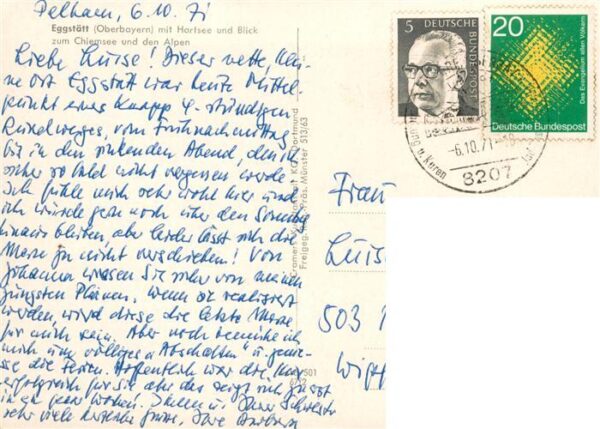 Pelham, 6.10.71
Eggstätt (Oberbayern) mit Hartsee und Blick
zum Chiemsee und den Alpen
Liebe Luise! Dieser nette, kleine
Ort Eggstätt war heute Mittel-
punkt eines knapp 4-stündigen
vom Frühnachmittag
bis in den sinkenden Abend, den ich
sicher so bald nicht vergessen werde.
Ich fühle mich sehr wohl hier und
ich würde gern noch über den Sonntag
hinaus bleiben, aber leider lässt sich die
ja nicht verschieben! Von
Johanna wissen Sie sicher von meinen
jüngsten Plänen. Wenn sie realisiert
werden, wird diese die letzte
für mich sein. Aber noch bemühe ich
mich um völliges "Abschalten" u. genies-
se die Ferien. Hoffentlich war die Kur
erfolgreich für Sie, aber das zeigt sich ja erst
in ein paar Wochen. Ihnen u. Ihrer Schwester
sehr viele herzliche Grüsse, Ihre
Cramers Dortmund
Freigeg. Reg. Präs. Münster 513/63
5 DEUTSCHE BUNDESPOST
20
Das Evangelium allen Völkern
Deutsche Bundespost
-6.10.71-18
8207
u. Kuren
Frau
Luis
503